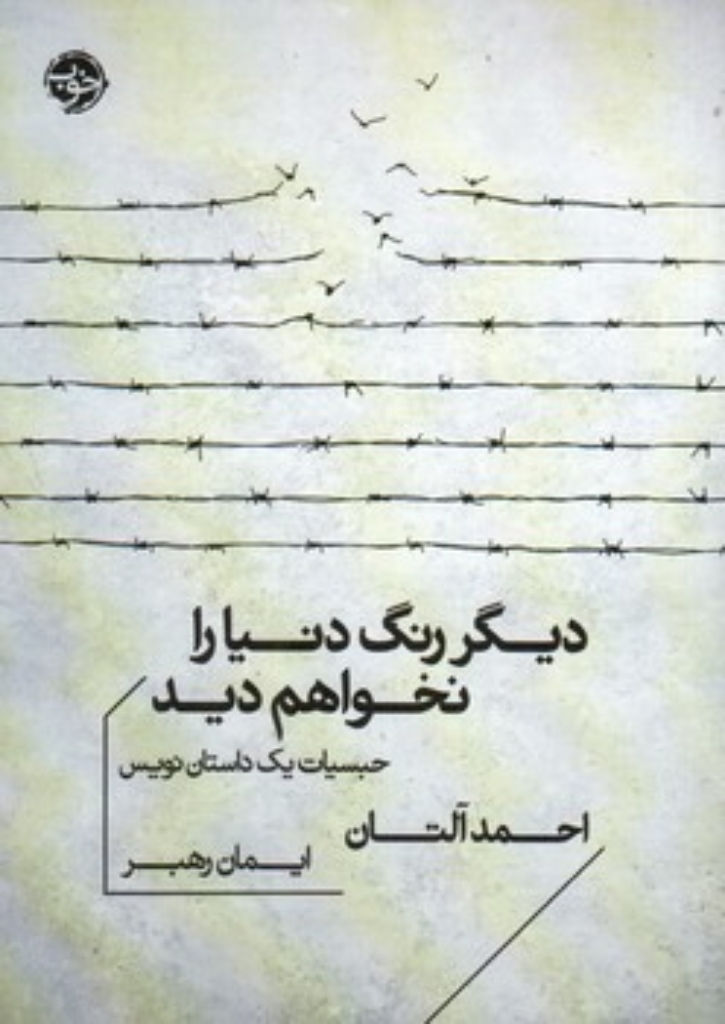 خوب
دیگر رنگ دنیا را
نخواهم دید
حبسیات یک داستان نویس
احمد آلتان
ایمان رهبر